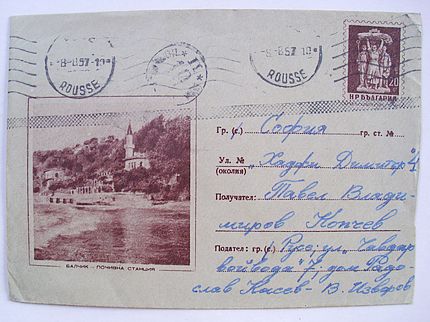 -8-8 57-19
ROUSSE
-8-8 57-19
ROUSSE
НР БЪЛГАРИЯ 20
Гр. (с.) София гр. ст. №
Ул. № „Хаджи Димитър“ 4
(околия)
Получател: Павел Влади-
миров Копчев
Подател: гр. (с.) Русе; ул. „Чавдар
войвода“ 7; дом Радо-
слав Касев - В. Изворов
БАЛЧИК — ПОЧИВНА СТАНЦИЯ